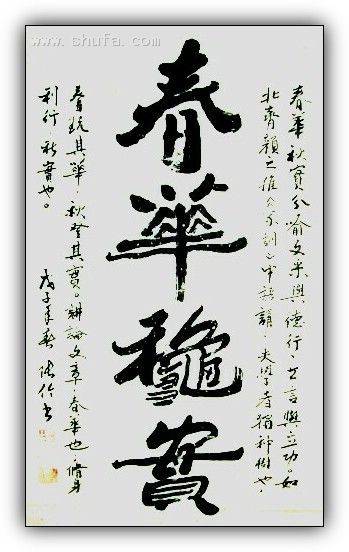 www.shufa.com
春華龝實
春華秋實分喻文采與德行、立言與立功。如
北齊顏之推家訓中語謂、夫學者猶種樹也、
春玩其華、秋登其實。講論文章、春華也、脩身
利行、秋實也。
戊子年春